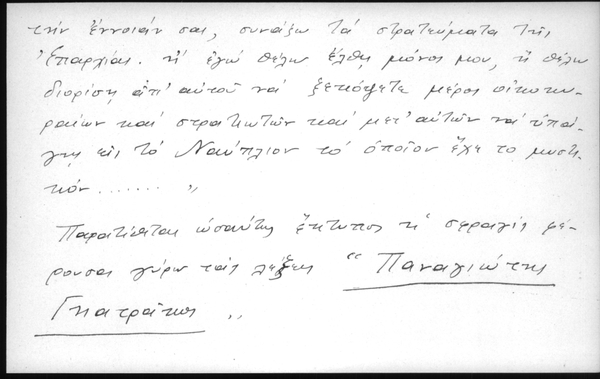 τήν ἔννοιάν σας, συνάξω τά στρατεύματα τῆς
Ἐπαρχίας. ἤ ἐγώ θέλω ἔλθη μόνος μου, ἤ θέλω
διορίση ἀπ' αὐτοῦ νά ξεκόψετε μέρος οἰκοκυ-
ραίων καί στρατιωτῶν καί μετ' αὐτῶν νά ὑπά-
γης εἰς τό Ναύπλιον τό ὁποῖον ἔχε το μυστι-
κόν ....... „
Παρατίθεται ὡσαύτως ἔκτυπος ἡ σφραγίς φέ-
ρουσα γύρω τάς λέξεις “ Παναγιώτης
Γιατράκος „